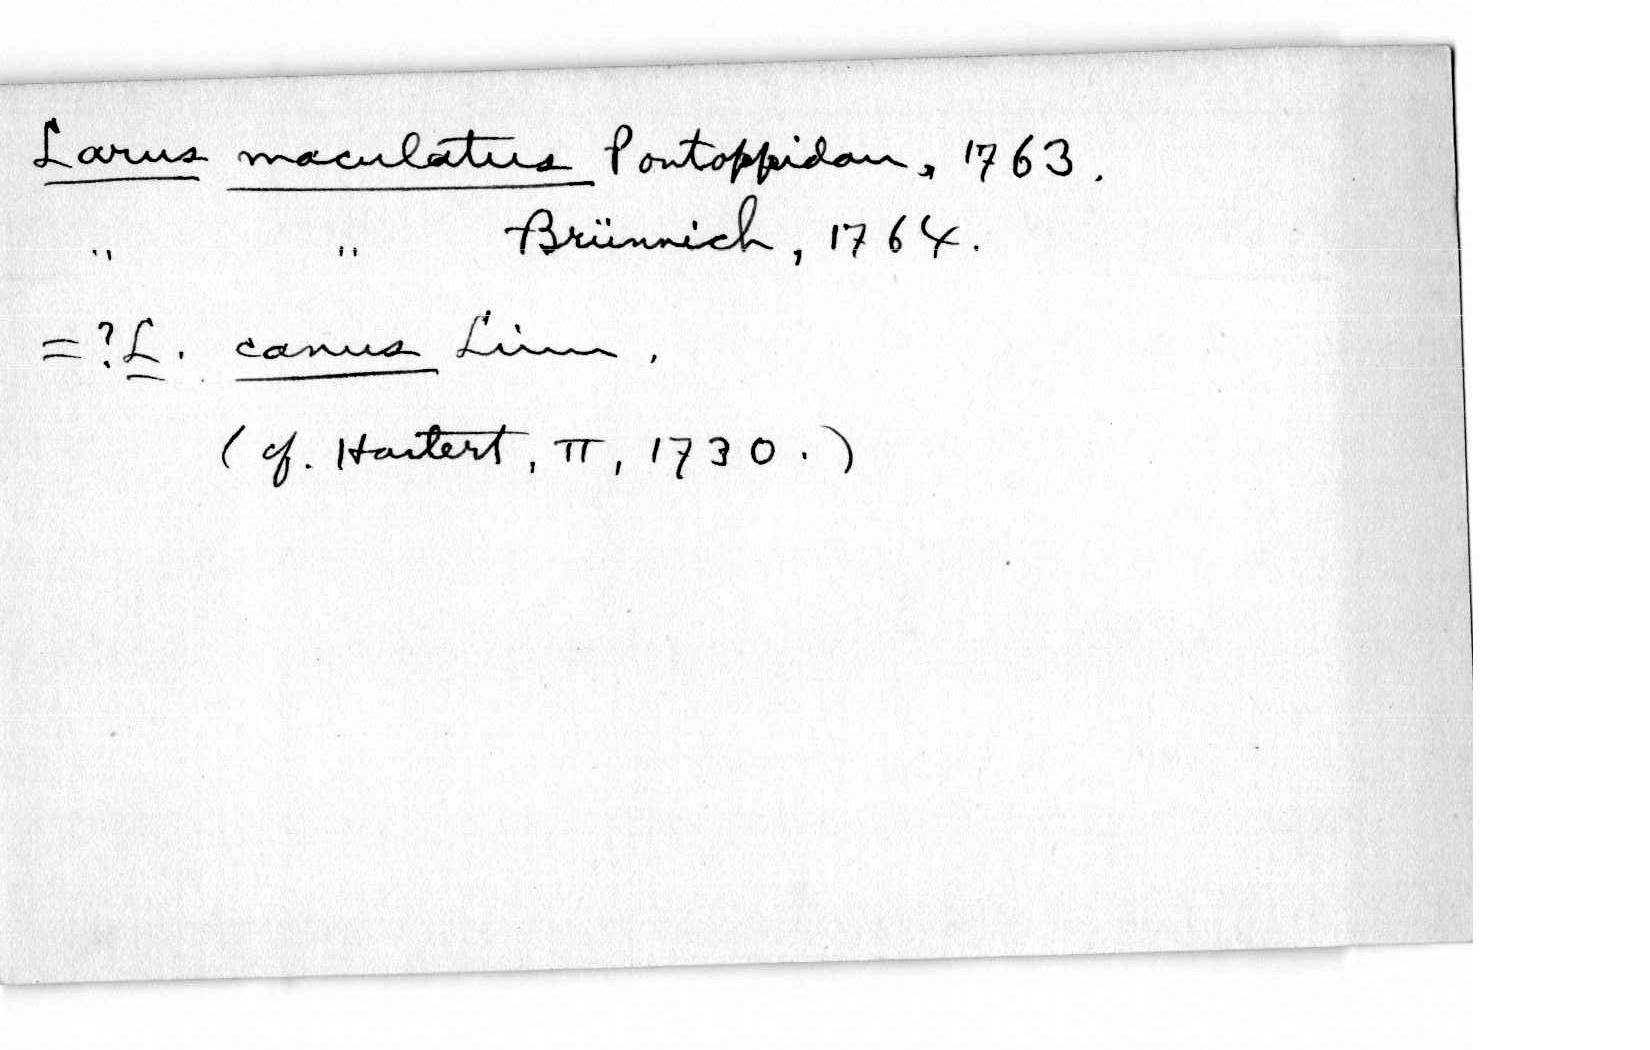 Larus maculatus Pontoppidan, 1763.
" " Brünnich, 1764.
=? L. canus Linn.
(cf. Hartert, II, 1730.)